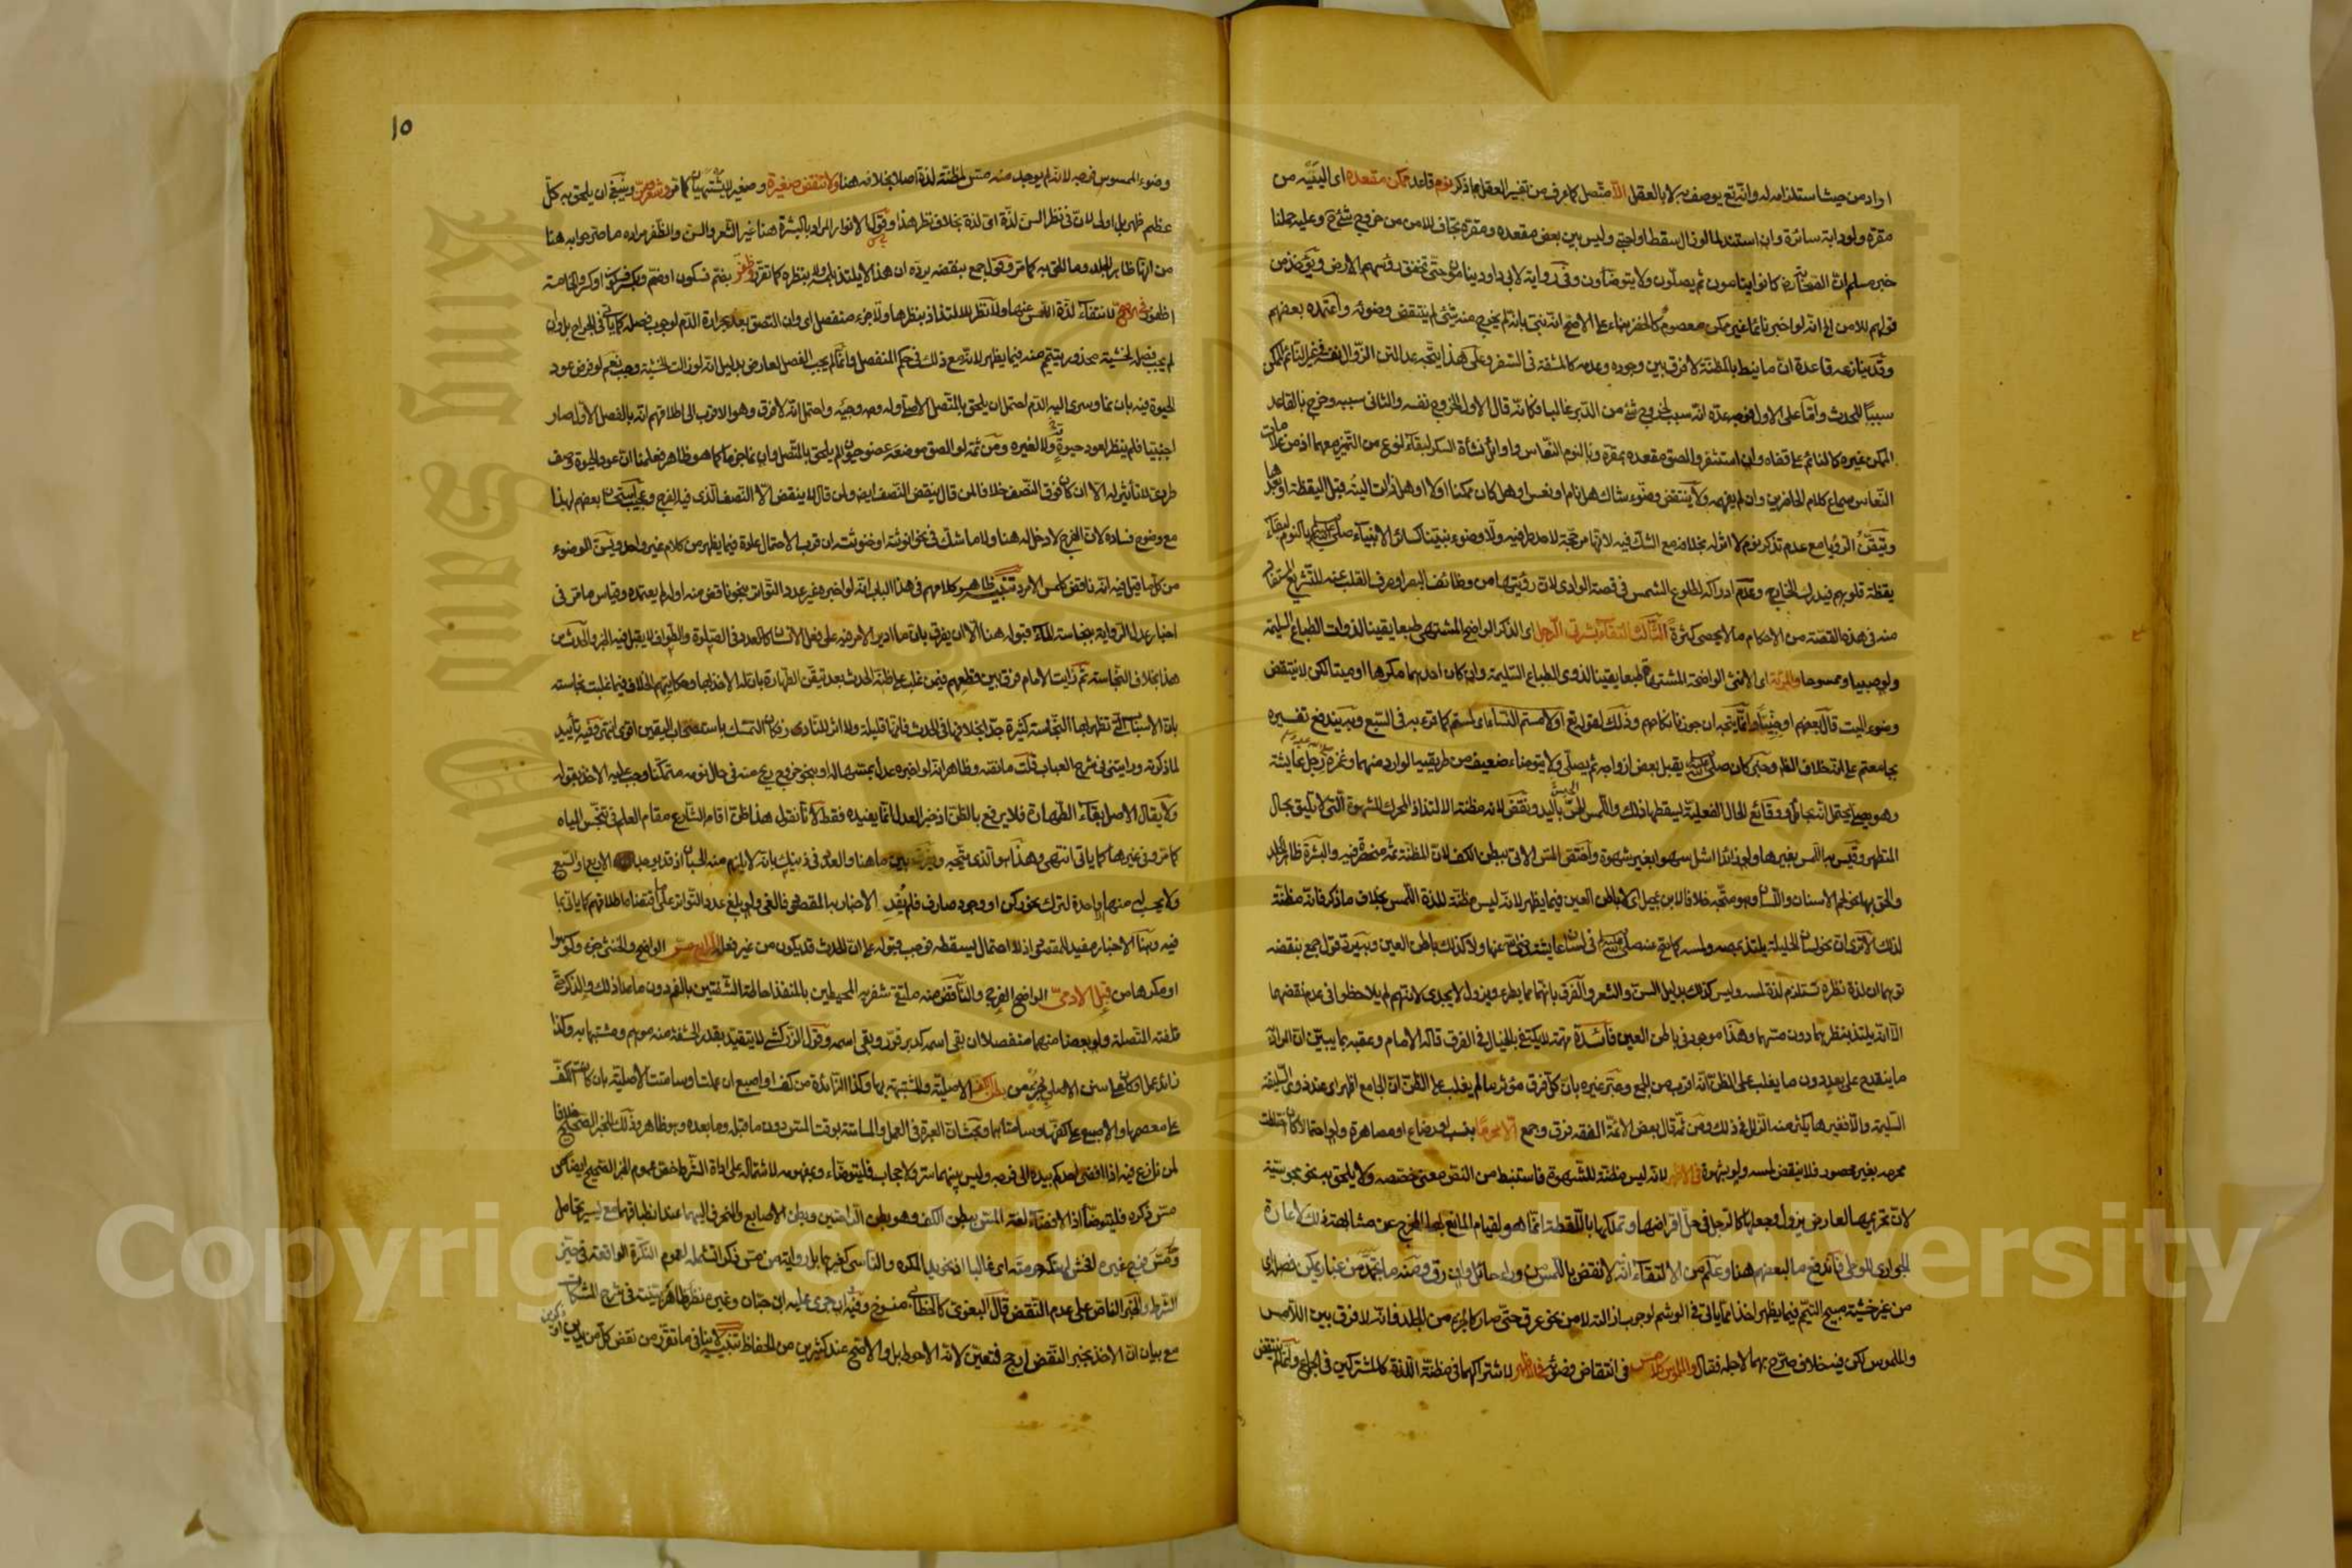 اواد من حيث استلذامه له وانه تع يوصف به لا بالعقل الا متصل كما عرف من تفسير العقل بما ذكر نوم قاعد ممكن مقعده اى الييه من
مقره ولو دابة سائرة وان استند لما لو زال سقط او احتبى وليس بين بعض مقعده ومقره تجاف للامن من خروج شئ ح وعليه حملنا
خبر مسلم ان الصحابة كانوا ينامون ثم يصلون ولا يتوضأون وفى رواية لابى داود ينامون حتى تخفق رؤسهم الارض ويؤخذ من
قولهم للامن الخ انه لو اخبر نائما غير ممكن معصوم كالخضر بناء على الاصح انه نبى بانه لم يخرج منه شئ لم ينتقض وضوئه واعتمده بعضهم
وقد ينازعه قاعدة ان ما نيط بالمظنة لا فرق بين وجوده وعدمه كالمشقة فى السفر وعلى هذا يتجه عد النوم
سببا للحدث واما على الاول فوجه عده انه سبب لخروج شئ من الدبر غالبا فكانه قال الاول الخروج نفسه والثانى سببه وخرج بالقاعد
الممكن غيره كالنائم على قفاه وان استثفر والصق مقعده بمقره وبالنوم النعاس واوائل نشأة السكر لبقاء نوع من التميز معهما اذ من علامات
النعاس سماع كلام الحاضرين وان لم يفهمه ولا ينتقض وضوء شاك هل نام او نعس او هل كان ممكنا اولا او هل زالت اليته قبل اليقظة او بعدها
وتيقن الرؤيا مع عدم تذكر نوم لا اثر له بخلافه مع الشك فيه لانها مرجحة لاحد طرفيه ولا وضوء نبينا كسائر الانبياء صلى الله عليه وسلم بالنوم لبقاء
يقظة قلوبهم فيدرك الخارج وعدم ادراكه لطلوع الشمس فى قصة الوادى لان رؤيتها من وظائف البصر او صرف القلب عنه للتشريع المستفاد
منه فى هذه القصة من الاحكام ما لا يحصى كثرة الثالث التقاء بشرتى الرجل اى الذكر الواضح المشتهى طبعا يقينا لذوات الطباع السليمة
ولو صبيا وممسوحا والمرأة اى الانثى الواضحة المشتهاة طبعا يقينا لذوى الطباع السليمة وان كان احدهما مكرها او ميتا لكن لا ينتقض
وضوء الميت قال بعضهم او جنيا وانما يتجه ان جوزنا نكاحهم وذلك لقوله تع اولامستم النساء اى لمستم كما قرئ به فى السبع وبه يندفع تفسيره
بجامعتم على انه خلاف الظ وخبر كان صلى الله عليه وسلم يقبل بعض ازواجه ثم يصلى ولا يتوضاء ضعيف من طريقيه الوارد منهما وغمزه رجل عايشة
وهو يصلى يحتمل انه بحائل ووقائع الحال الفعلية ليسقطها ذلك واللمس الجس باليد ونقض لانه مظنة الالتذاذ المحرك للشهوة التى لا تليق بحال
المتطهر وقيس به اللمس بغيرها ولو زائدا اشل سهوا بغير شهوة واختص المس الاتى ببطن الكف لان المظنة ثمه منحصرة فيه والبشرة ظاهر الجلد
والحق بها نحو لحم الاسنان واللسان وهو متجه خلافا لابن عجيل اى لا باطن العين فيما يظهر لانه ليس مظنة للذة اللمس بخلاف ما ذكر فانه مظنة
لذلك الا ترى ان نحو لسان الحليلة يلتذ بمصه ولمسه كما صح عنه صلى الله عليه وسلم فى لسان عايشة رضى الله عنها ولا كذلك باطن العين وبه يرد قول جمع بنقضه
توهما ان لذة نظره تستلزم لذة لمسه وليس كذلك بدليل السن والشعر والفرق بانهما مما يطرء ويزول لا يجدى لانهم لم يلاحظوا فى عدم نقضهما
الا انه يلتذ بنظرهما دون مسهما وهذا موجود فى باطن العين فائدة مهمة لا يكتفى بالخيال فى الفرق قاله الامام وعقبه بما يبين ان المراد
ما ينقدح على بعد دون ما يغلب على الظن انه اقرب من الجمع وعبر غيره بان كل فرق مؤثر ما لم يغلب على الظن ان الجامع اظهر اى عند ذوى السليقة
السليمة والا فغيرها يكثر منه الزلل فى ذلك ومن ثمه قال بعض الائمة الفقه فرق وجمع الا محرما بنسب او رضاع او مصاهرة ولو احتمالا
محرمه بغير محصور فلا ينقض لمسه ولو بشهوة فى الاظهر لانه ليس مظنة للشهوة فاستنبط من النص معنى خصصه ولا يلحق به نحو مجوسية
لان تحريمها لعارض يزول وجعلها كالرجل فى حل اقراضها وتملكها باللقطة انما هو لقيام المانع بها المخرج عن مشابهة ذلك لاعارة
الجوارى للوطى فاندفع ما لبعضهم هنا وعلم من الالتقاء انه لا نقض باللمس من وراء حائل وان رق ومنه ما تجمد من غبار يمكن فصله اى
من غير خشية مبيح التيمم فيما يظهر اخذا مما ياتى فى الوشم لوجوب ازالته لا من نحو عرق حتى صار كالجزء من الجلد فانه لا فرق بين اللامس
والملموس لكن فيه خلاف صرح بهما لاجله فقال والملموس كلامس فى انتقاض وضوئه فى الاظهر لاشتراكهما فى مظنة اللذة كالمشتركين فى الجماع وانما لم ينتقض
١٥
وضوء الممسوس فرجه لانه لم يوجد منه مس لمظنة لذة اصلا بخلافه هنا ولا تنقض صغيرة وصغير لا يشتهيان كما مر وشعر وسن وينبغى ان يلحق به كل
عظم ظهر بل اولى لان فى نظر السن لذة اى لذة بخلاف نظر هذا وقول الانوار المراد بالبشرة هنا غير الشعر والسن والظفر مراده ما صرحوا به هنا
من انها ظاهر الجلد وما الحق به كما مر وقول جمع بنقضه يرده ان هذا لا يلتذ بلمسه ولا بنظره كما تقرر وظفر بضم فسكون او ضم وبكسر فسكون او كسر والخامسة
اظفور فى الاصح لانتفاء لذة اللمس عنها ولا نظر للالتذاذ بنظرها ولا جزء منفصل اى وان التصق بعد بحرارة الدم لوجوب فصله كما ياتى فى الجراح بل وان
لم يجب فصله لخشية محذور يتيمم منه فيما يظهر لانه مع ذلك فى حكم المنفصل وانما لم يجب الفصل لعارض بدليل انه لو زالت الخشية وجب نعم لو فرض عود
الحيوة فيه بان نما وسرى اليه الدم احتمل ان يلحق بالمتصل الاصلى وله وجه وجيه واحتمل انه لا فرق وهو الاقرب الى اطلاقهم انه بالفصل الاول صار
اجنبيا فلم ينظر لعود حيوة فيه ولا لغيره ومن ثمه لو الصق موضعه عضو حيوان لم يلحق بالمتصل وان نما جزما كما هو ظاهر فعلمنا ان عود الحيوة وصف
طردى لا تأثير له الا ان كان فوق النصف خلافا لمن قال ينقض النصف ايضا ولمن قال لا ينقض الا النصف الذى فيه الفرج وعجيب استحسان بعضهم لهذا
مع وضوح فساده لان الفرج لا دخل له هنا ولا ما شك فى نحو انوثته او خنوثته ان قرب الاحتمال عادة فيما يظهر من كلام غير واحد ويسن الوضوء
من كل ما قيل فيه انه ناقض كلمس الامرد تنبيه ظاهر كلامهم فى هذا الباب انه لو اخبره غير عدد التواتر بنحو ناقض منه اوله لم يعتمده وقياس ما مر فى
اخبار عدل الرواية بنجاسة الماء قبوله هنا الا ان يفرق بان ما ادير الامر فيه على فعل الانسان كالعدد فى الصلوة والطواف لا يقبل فيه الخبر والحدث من
هذا بخلاف النجاسة ثم رايت الامام فرق بين قطعهم فيمن غلب على ظنه الحدث بعد تيقن الطهارة بان له الاخذ بها وحكايتهم الخلاف فيما غلبت نجاسته
بان الاسباب التى تظهر بها النجاسة كثيرة جدا بخلافها فى الحدث فانها قليلة ولا اثر للنادر فكان التمسك باستصحاب اليقين اقوى انتهى وفيه تأييد
لما ذكرته ورايتنى فى شرح العباب قلت ما نقنه وظاهر انه لو اخبره عدل بمسها له او بنحو خروج ريح منه فى حال نومه متمكنا وجب عليه الاخذ بقوله
ولا يقال الاصل بقاء الطهارة فلا يرفع بالظن اذ خبر العدل انما يفيده فقط لانا نقول هذا ظن اقام الشارع مقام العلم فى تنجس المياه
كما مر وفى غيرها كما ياتى انتهى وهذا هو الذى يتجه ويفرق بين ما هنا والعدد فى ذينك بانه لا يلزم منه الحسبان اذ قد يوجد الاربع والسبع
ولا يحسب له منها واحدة لترك نحو ركن او وجود صارف فلم يفد الاخبار به المقصود فالغى وان بلغ عدد التواتر على ما اقتضاه اطلاقهم كما ياتى بما
فيه وهنا الاخبار مفيد للمقصود اذ لا احتمال يسقطه فوجب قبوله على ان الحدث قد يكون من غير فعله الرابع مس الواضح والخنثى جزء ولو سهوا
او مكرها من قبل الادمى الواضح الفرج والناقض منه ملتقى شفريه المحيطين بالمنفذ احاطة الشفتين بالفم دون ما عدا ذلك والذكر حتى
قلفته المتصلة ولو بعضا منهما منفصلا ان بقى اسمه كدبر قور وبقى اسمه وقول الزركشى لا يتقيد بقدر الحشفة منه موهم ومشتبها به وكذا
زائد عمل او كان على سنن الاصلى بجزء من بطن الكف الاصلية والمشتبهة بها وكذا الزائدة من كف او اصبع ان عملت او سامتت الاصلية بان كانت الكف
على معصمها والاصبع على كفها وسامتاهما وبحث ان العبرة فى العمل والمسامتة بوقت المس دون ما قبله وما بعده وهو ظاهر وذلك للخبر الصحيح خلافا
لمن نازع فيه اذا افضى احدكم بيده الى فرجه وليس بينهما ستر ولا حجاب فليتوضاء وبمفهومه لاشتماله على اداة الشرط خص عموم الخبر الصحيح ايضا من
مس ذكره فليتوضأ اذ الافضاء لغة المس ببطن الكف وهو بطن الراحتين وبطن الاصابع والمنحرف اليهما عند انطباقهما مع يسير تحامل
ومس فرج غيره افحش لهتكه حرمته اى غالبا اذ نحو يد المكره والناسى كغيرهما بل رواية من مس ذكرا تشمله لعموم النكرة الواقعة فى حيز
الشرط والخبر الناص على عدم النقض قال البغوى كالخطابى منسوخ وفيه ان جرى عليه ابن حبان وغيره نظر ظاهر بينته فى شرح المشكاة
مع بيان ان الاخذ بخبر النقض ارجح فتعين لانه الاحوط بل والاصح عند كثيرين من الحفاظ تنبيه لا ينافى ما تقرر من نقض كل من يدين او ذكرين